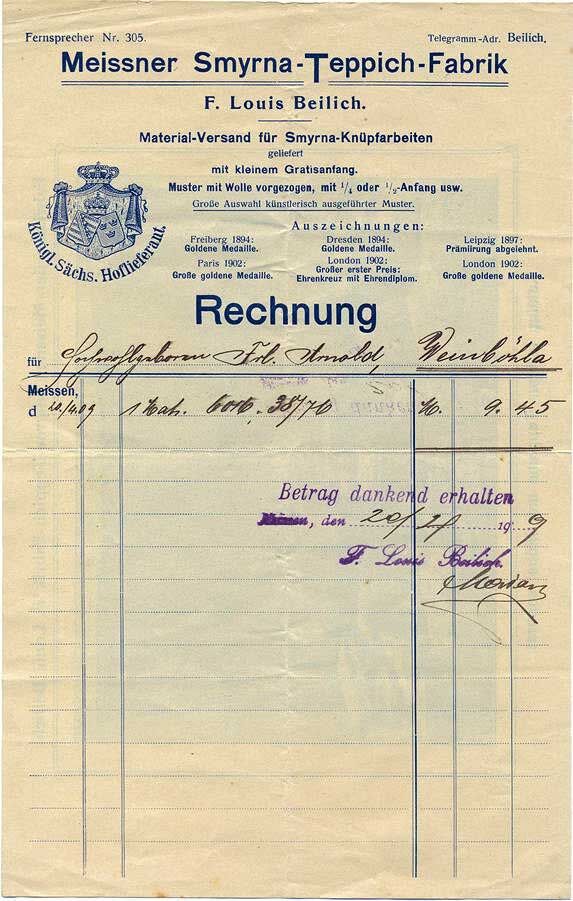 Fernsprecher Nr. 305.
Telegramm-Adr. Beilich.
Meissner Smyrna-Teppich-Fabrik
F. Louis Beilich.
Material-Versand für Smyrna-Knüpfarbeiten
geliefert
mit kleinem Gratisanfang.
Muster mit Wolle vorgezogen, mit 1/4 oder 1/2-Anfang usw.
Große Auswahl künstlerisch ausgeführter Muster.
Königl. Sächs. Hoflieferant.
Auszeichnungen:
Freiberg 1894: Dresden 1894: Leipzig 1897:
Goldene Medaille. Goldene Medaille. Prämiirung abgelehnt.
Paris 1902: London 1902: London 1902:
Große goldene Medaille. Großer erster Preis: Große goldene Medaille.
Ehrenkreuz mit Ehrendiplom.
Rechnung
für Hochwohlgeboren Frl. Arnold, Weinböhla
Meissen,
d 20/4.09 1 38/70 M. 9.45
Betrag dankend erhalten
den 20/ 19 9
F. Louis Beilich.